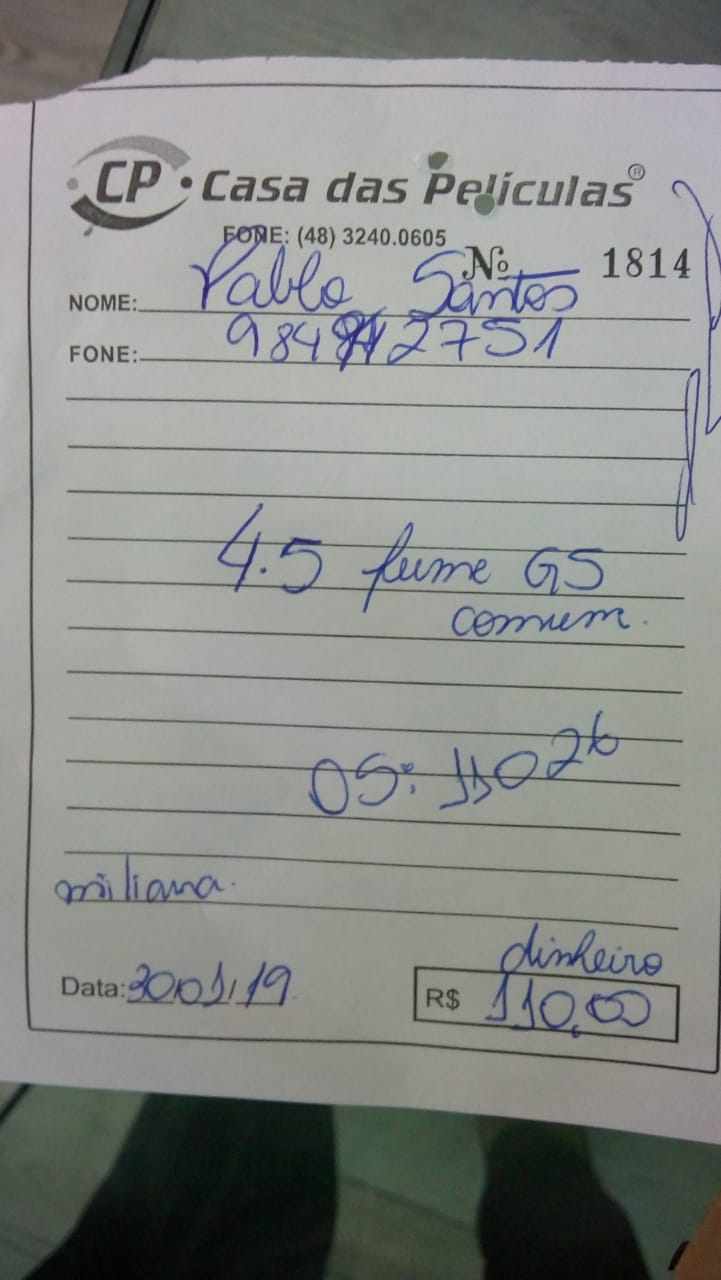 CP • Casa das Películas®
FONE: (48) 3240.0605
Nº 1814
NOME: Pablo Santos
FONE:
4.5 fume G5
comum.
OS: 11026
miliana.
dinheiro
Data: 30/01/19
R$ 110,00